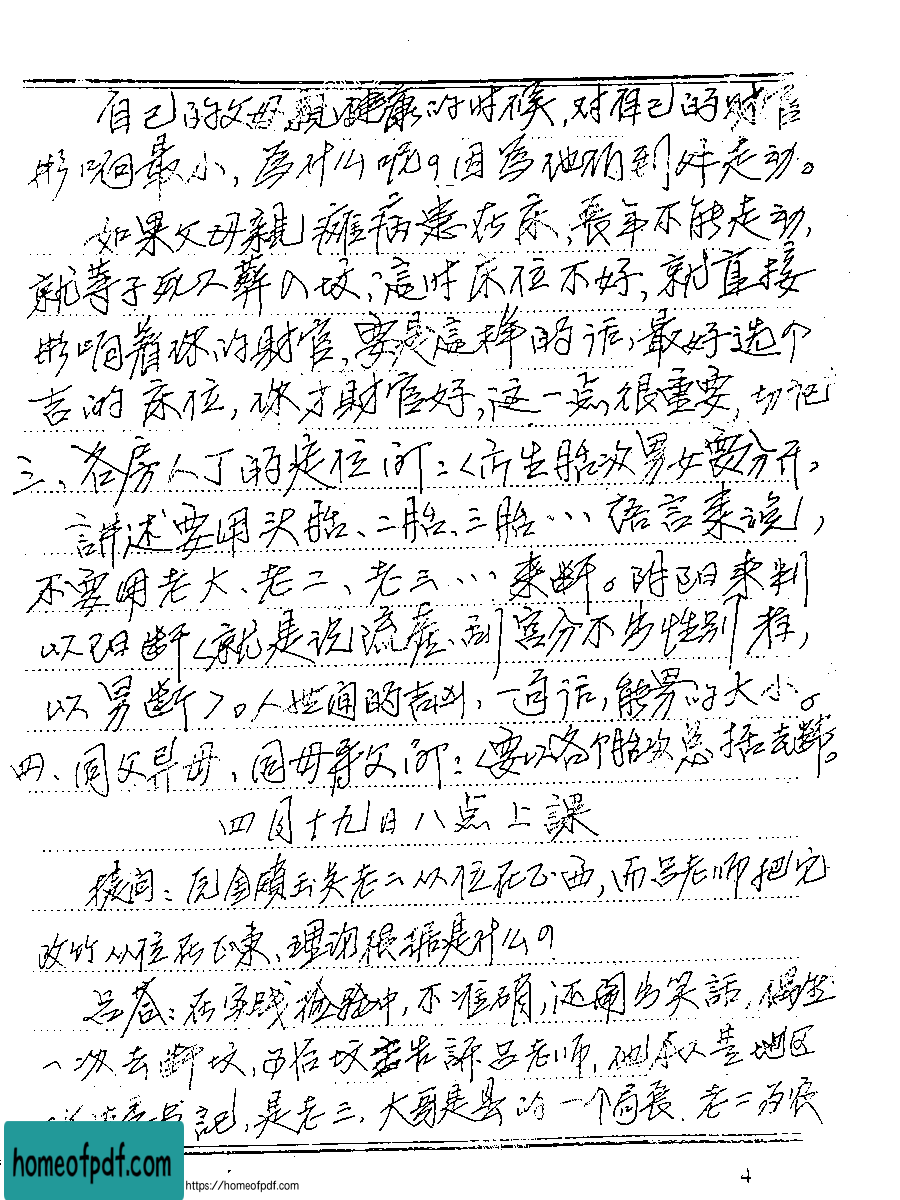 自己的父母親健康的时候,对自己的财官
影响最小,為什么呢?因為他须到处走动。
如果父母親瘫病患在床,長年不能走动,
就等于死人葬入坟;這时床位不好,就直接
影响着你的財官,要是這样的话,最好选个
吉的床位,你才財官好,这一点很重要,切记
三、各房人丁的定位
所生胎次男女要分开。
講述要用头胎、二胎、三胎…語言来说,
不要用老大、老二、老三…来断。阴阳来判
以阳断<就是说流産、刮宫分不出性别者,
以男断>。人世间的吉凶,
的大小。
四、同父异母,同母异父
:<要以各个胎次总括去断。
四月十九日八点上課
提问:
老二从位在正西,而吕老师把它
改
从位在正東、理论根据是什么?
吕答:在实践检验中,不准确,还闹出笑話,
一次去断坟,
告訴吕老师,他
地区
书記,是老三,大哥是县的一个局長、老二为农
4
homeofpdf.com
https://homeofpdf.com